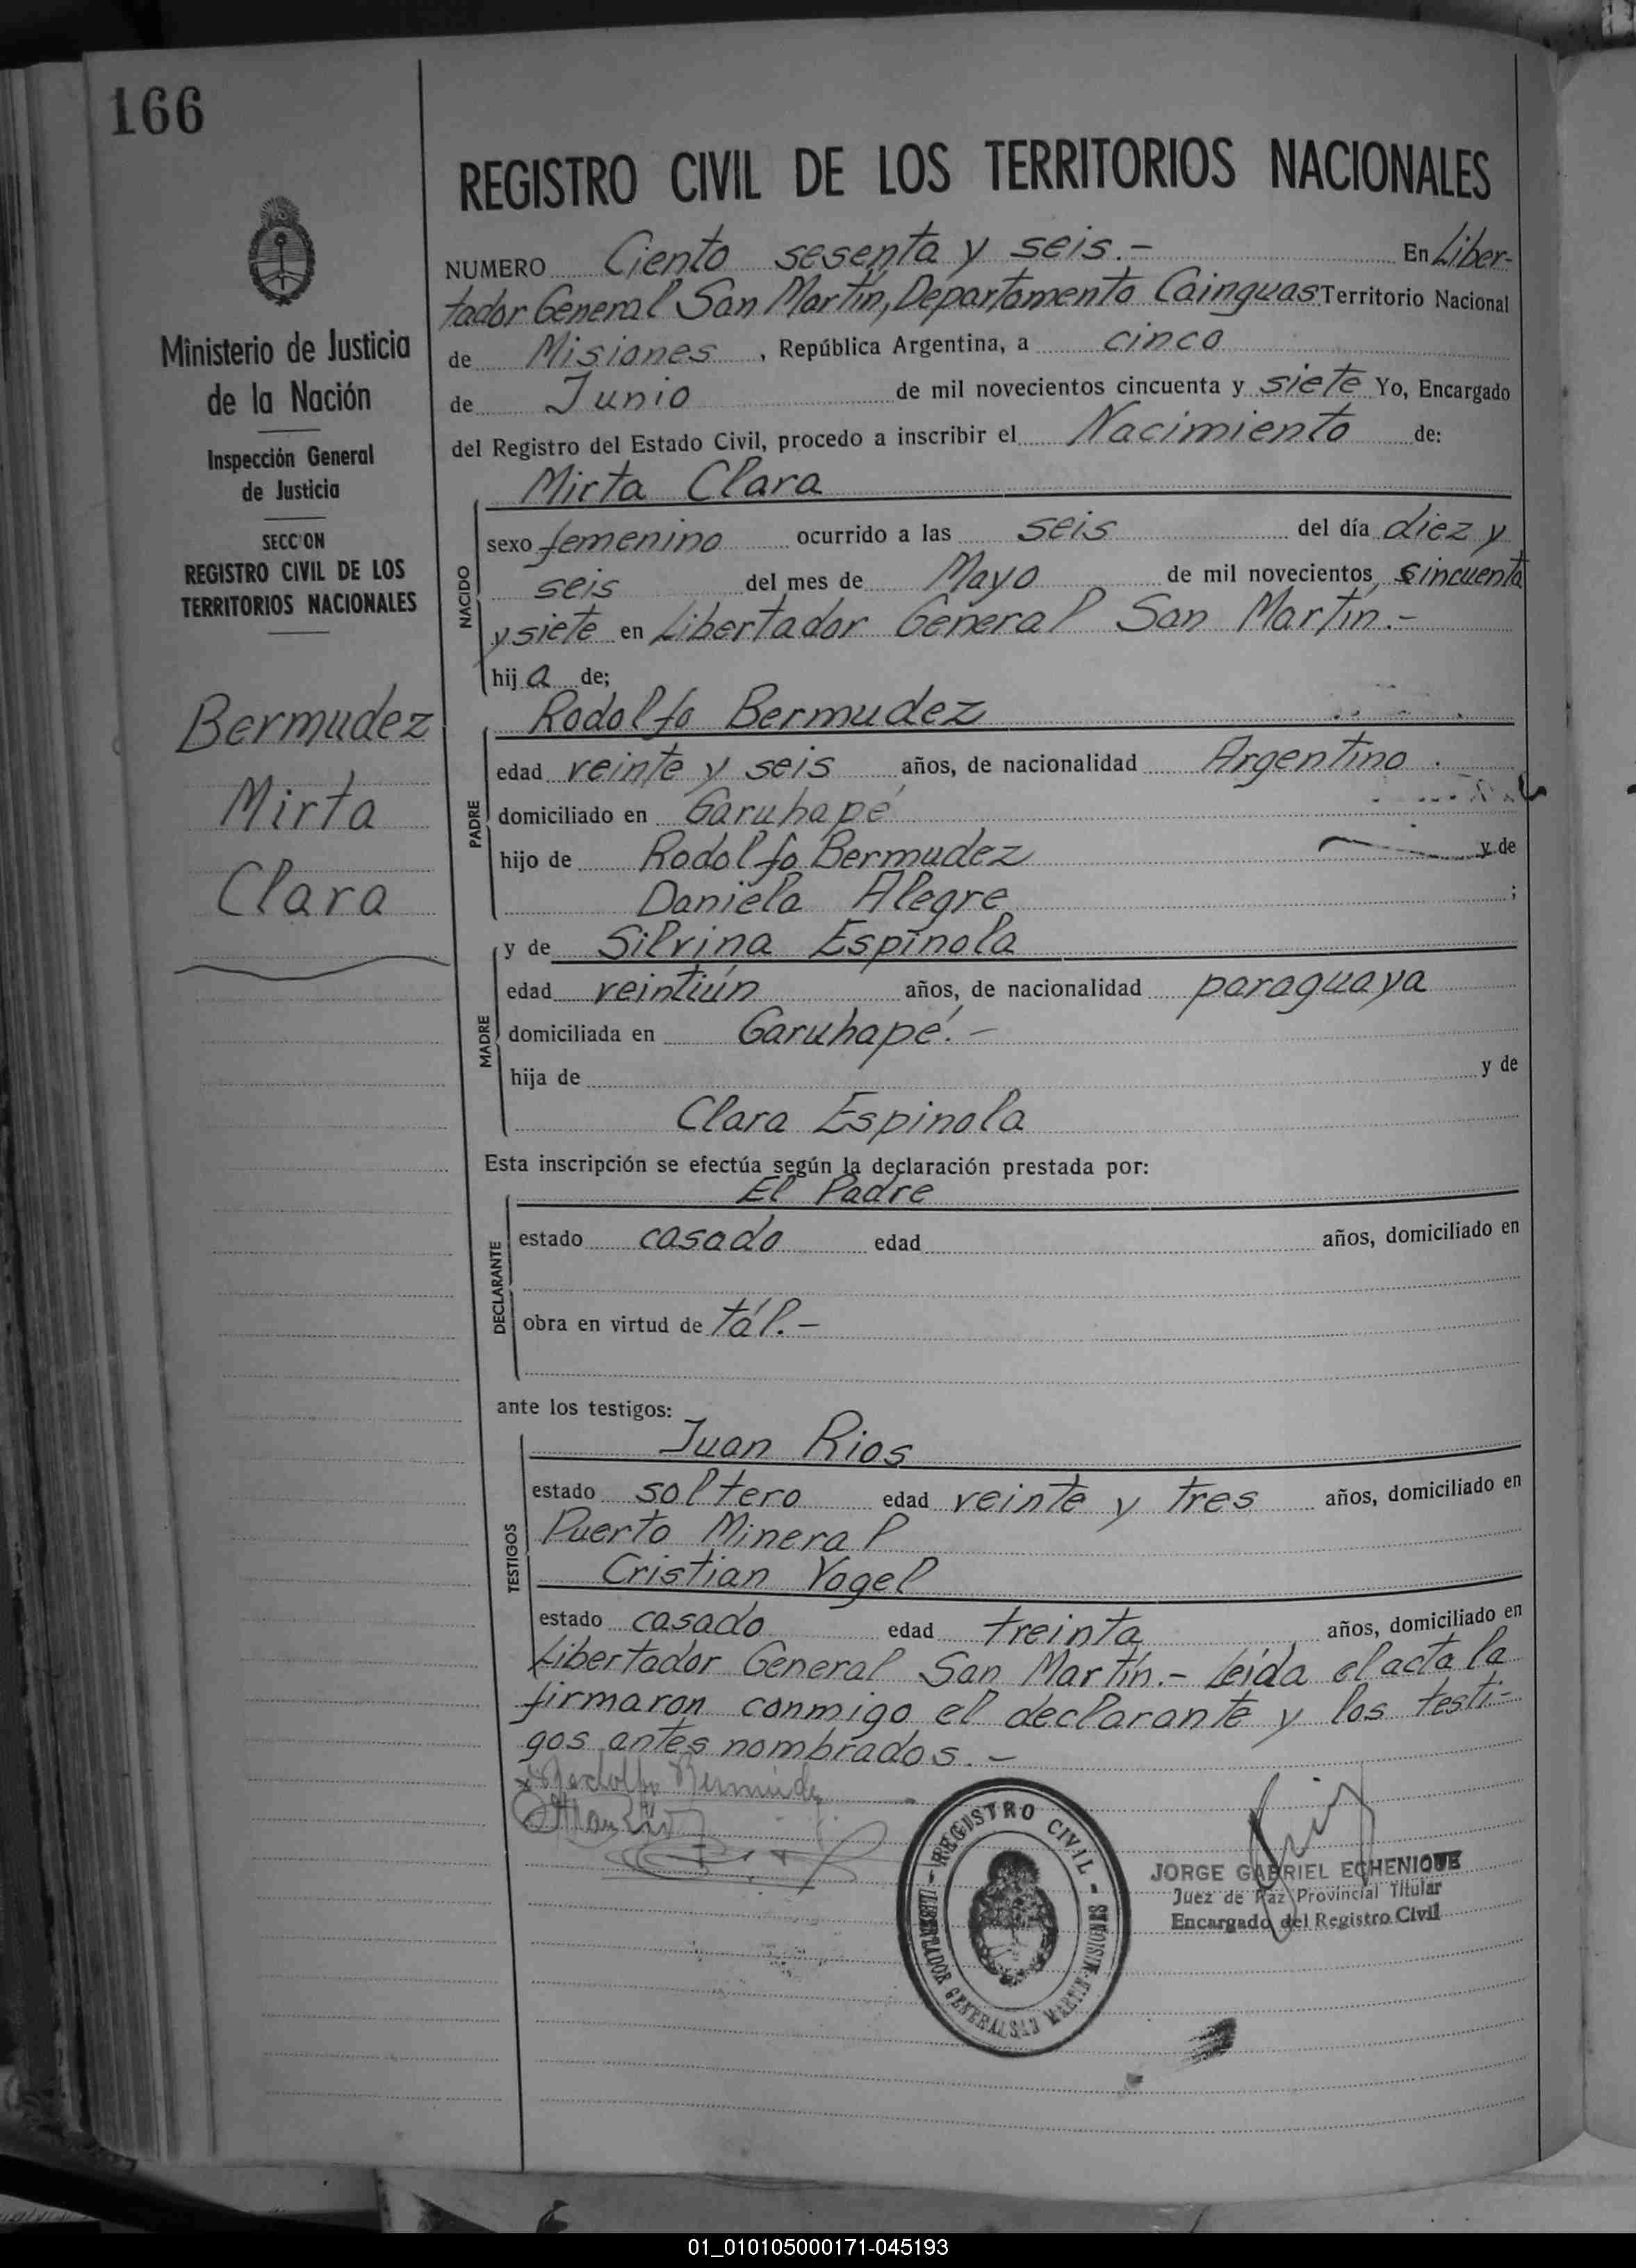 166
REGISTRO CIVIL DE LOS TERRITORIOS NACIONALES
NUMERO Ciento sesenta y seis.- En Liber-
tador General San Martín, Departamento Cainguas Territorio Nacional
de Misiones, República Argentina, a cinco
de Junio de mil novecientos cincuenta y siete Yo, Encargado
del Registro del Estado Civil, procedo a inscribir el Nacimiento de:
Mirta Clara
NACIDO
sexo femenino ocurrido a las seis del día diez y
seis del mes de Mayo de mil novecientos, sincuenta
y siete en Libertador General San Martín.-
hij a de;
Rodolfo Bermudez
PADRE
edad veinte y seis años, de nacionalidad Argentino
domiciliado en Garuhapé
hijo de Rodolfo Bermudez y de
Daniela Alegre ;
y de Silvina Espínola
MADRE
edad veintiún años, de nacionalidad paraguaya
domiciliada en Garuhapé.-
hija de y de
Clara Espinola
Esta inscripción se efectúa según la declaración prestada por:
El Padre
DECLARANTE
estado casado edad años, domiciliado en
obra en virtud de tál.-
ante los testigos:
Juan Rios
TESTIGOS
estado soltero edad veinte y tres años, domiciliado en
Puerto Mineral
Cristian Vogel
estado casado edad treinta años, domiciliado en
Libertador General San Martín.- Leída el acta la
firmaron conmigo el declarante y los testi-
gos antes nombrados.-
REGISTRO CIVIL
LIBERTADOR GENERAL SAN MARTIN - MISIONES
JORGE GABRIEL ECHENIQUE
Juez de Paz Provincial Titular
Encargado del Registro Civil
Ministerio de Justicia
de la Nación
Inspección General
de Justicia
SECCION
REGISTRO CIVIL DE LOS
TERRITORIOS NACIONALES
Bermudez
Mirta
Clara
01_010105000171-045193